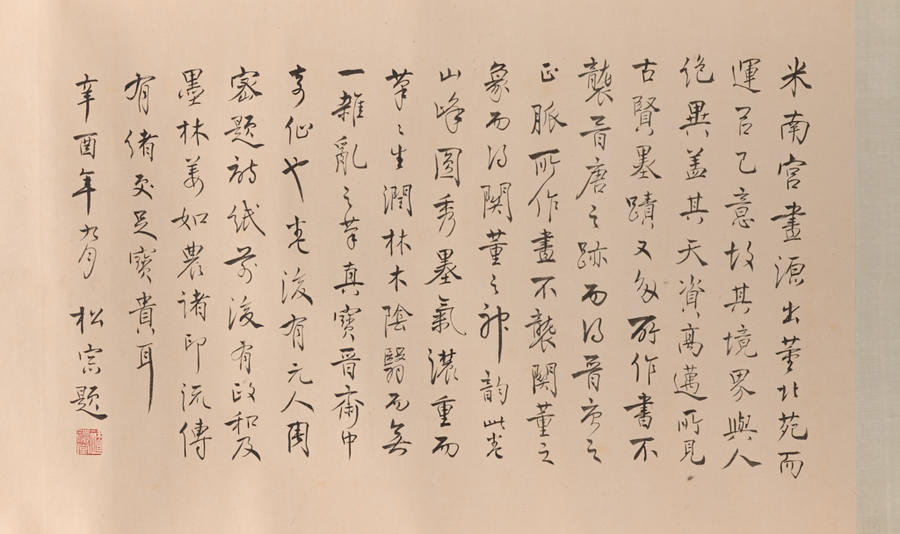 米南宮畫源出董北苑而
運百乙意故其境界與人
絶異蓋其天資高邁所見
古賢墨蹟又多所作書不
襲晉唐之跡而得晉唐之
正脈所作畫不襲關董之
象而得關董之神韵此卷
山峰圓秀墨氣濃重而
筆之生潤林木陰翳而無
一雜亂之筆真寶晉齋中
奇作也卷後有元人周
密題詩紙前後有政和及
墨林姜如農諸印流傳
有緒更足寶貴耳
辛酉年九月 松宗題